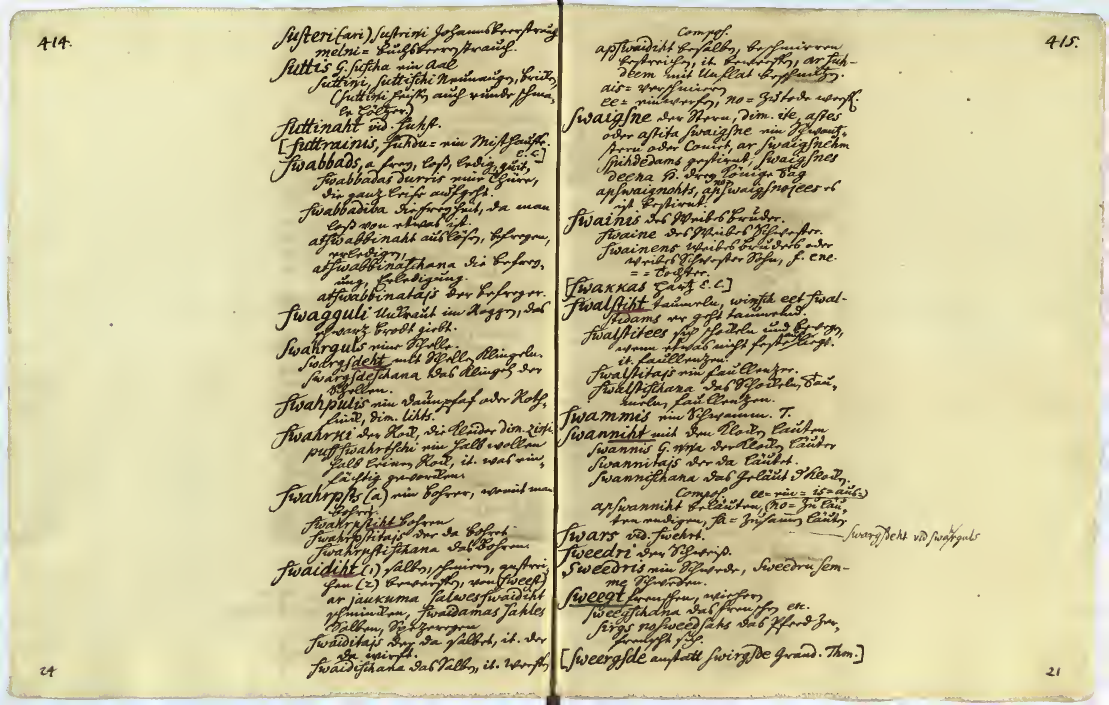 414.
Susteri (ari) sustrini Johannsbeerstrauch
melni = buchsbeerstrauch.
Suttis G. suscha ein Aal
suttini, suttischi Neunaugen, bricken
(suttini heißen auch runde schma-
le hölzer)
suttinaht vid. suhst.
[suttrainis, suhdu = ein Misthauffe.
E.C.]
Swabbads, a frey, loß, ledig, quit,
swabbadas durris eine Thüre,
die ganz leise aufgeht.
swabbadiba die freyheit, da man
loß von etwas ist.
atswabbinaht auslösen, befreyen,
erledigen,
atswabbinaschana die befrey-
ung, Erledigung.
atswabbinatajs der befreyer.
Swagguli Unkraut im Roggen, das
schwarz brodt giebt.
Swahrguls eine Schelle.
swargsdeht mit Schellen Klingeln.
swargsdeschana das Klingeln der
Schellen.
Swahpulis ein Daumpfaf oder Roth-
fink, dim. lihts.
Swahrki der Rock, die Kleider dim. zini.
pussswahrtschi ein halb wollen
halb leinen Rock, it. was ein-
fächtig geworden.
Swahrpsts (a) ein bohrer, womit man
bohret.
Swahrpstiht bohren
Swahrpstitajs der da bohret
Swahrpstischana das Bohren.
Swaidiht (1) salben, schmieren, gestri-
chen (2) bewerffen, von (sweest)
ar jaukuma salwes swaidiht
schmincken, swaidamas sahles
Salben, Spezereyen
Swaiditajs der da salbet, it. der
da wirft.
Swaidischana das Salben, it. werffen
24
415.
Compos.
apswaidiht besalben, beschmieren
bestreichen, it. bewerffen, ar suh-
deem mit Unflat beschmeißen.
ais = verschmieren
ee = einwerfen, no = zu tode werffen.
Swaigsne der Stern, dim. ite, astes
oder astita swaigsne ein Schwantz-
stern oder Comet, ar swaigsnehm
spihdedams gestirnt, swaigsnes
deena H. drey Könige Tag
apswaignohts, apswaigsnojees es
ist bestirnt.
Swainis des Weibes bruder.
swaine des Weibes Schwester.
swainens Weibes bruders oder
weibes Schwester Sohn, f. ene.
= = Tochter.
[Swakkas Hartz E.C.]
Swalstiht taumeln, winsch eet swal-
stidams er geht taumelnd
swalstitees sich schockeln und bewegen,
wenn etwas nicht feste liegt.
it. faullentzen.
swalstitajs ein faullentzer.
swalstischana das Schockeln, Tau-
meln, faullentzen.
Swammis ein Schwamm. T.
Swanniht mit den Klocken läuten
swannis G. nna der Klocken läuter
swannitajs der da läutet.
swannischana das Geläut d. Klocken.
Compos. ee = ein = is = aus =
apswanniht beläuten, (no = zu läu-
ten endigen, sa = zusamen läuten
Swars vid. swehrt.
swargsdeht vid swahrguls
Sweedri der Schweiß.
Sweedris ein Schwede, Sweedru sem-
me Schweden.
Sweegt frenschen, wiehern
sweegschana das frenschen etc.
Sirgs nosweedsahs das Pferd zer-
frenscht sich.
[Sweergsde anstatt swirgsde Grand. Thom.]
21